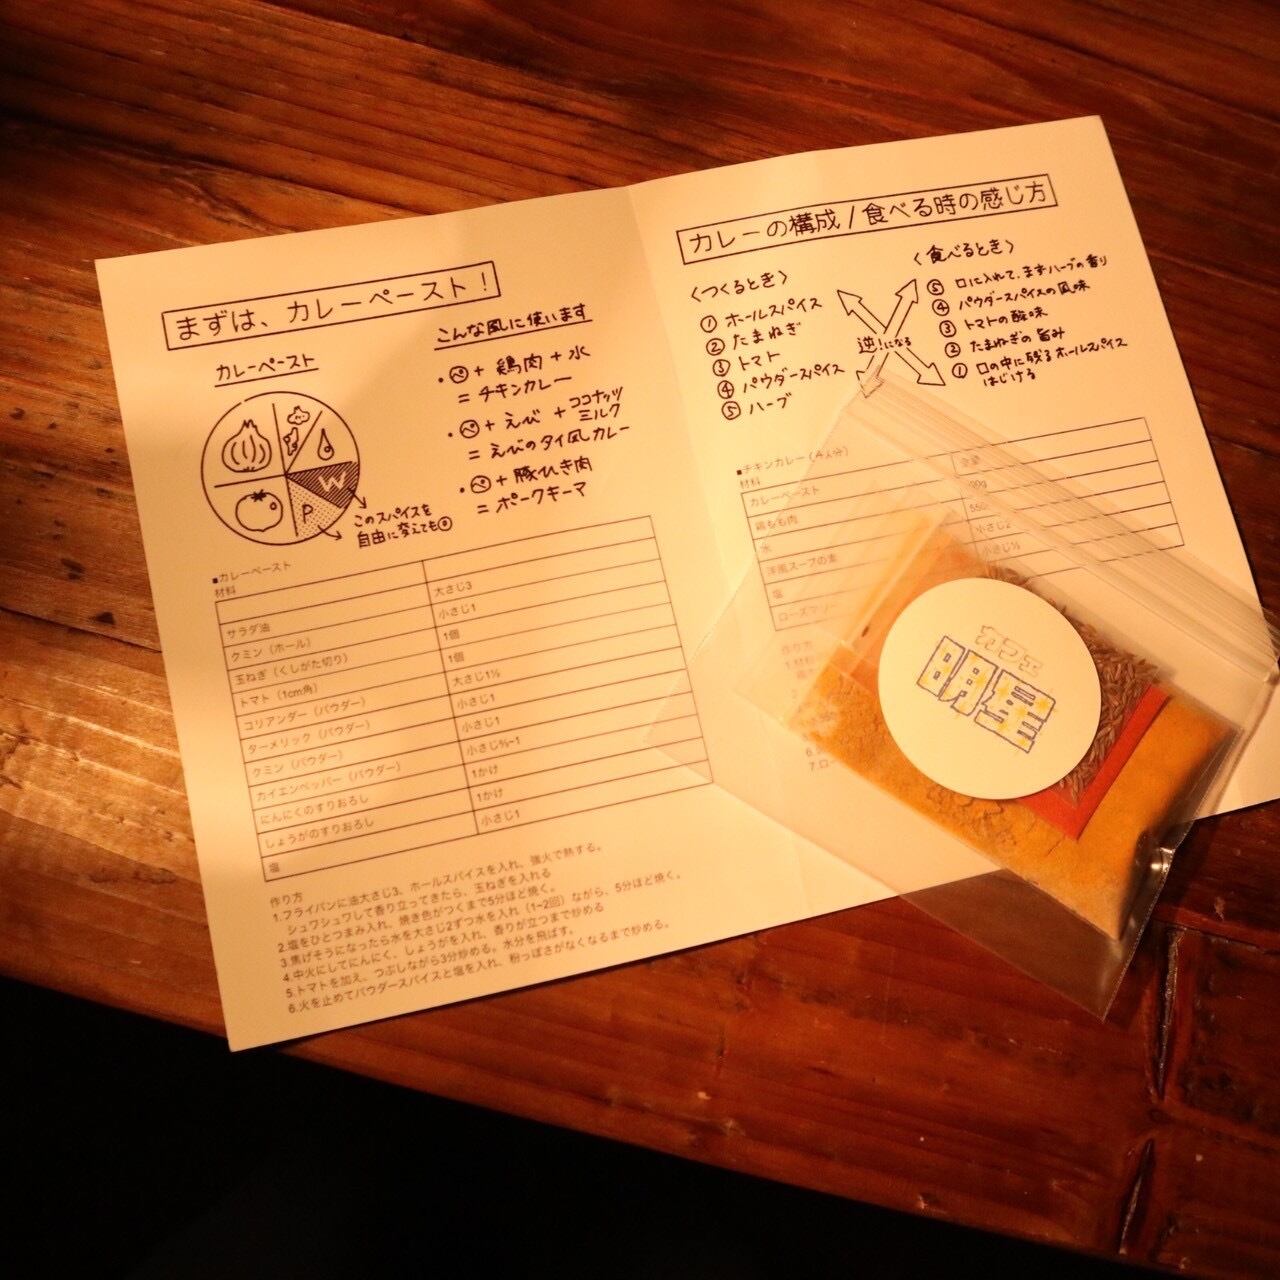 まずは、カレーペースト!
カレーペースト
W
P
このスパイスを
自由に変えても◎
こんな風に使います
・ペ + 鶏肉 + 水
= チキンカレー
・ペ + えび + ココナッツミルク
= えびのタイ風カレー
・ペ + 豚ひき肉
= ポークキーマ
■カレーペースト
材料
サラダ油 大さじ3
クミン（ホール） 小さじ1
玉ねぎ（くしがた切り） 1個
トマト（1cm角） 1個
コリアンダー（パウダー） 大さじ1½
ターメリック（パウダー） 小さじ1
クミン（パウダー） 小さじ1
カイエンペッパー（パウダー） 小さじ½~1
にんにくのすりおろし 1かけ
しょうがのすりおろし 1かけ
塩 小さじ1
作り方
1.フライパンに油大さじ3、ホールスパイスを入れ、強火で熱する。
シュワシュワして香り立ってきたら、玉ねぎを入れる
2.塩をひとつまみ入れ、焼き色がつくまで5分ほど焼く。
3.焦げそうになったら水を大さじ2ずつ水を入れ（1~2回）ながら、5分ほど焼く。
4.中火にしてにんにく、しょうがを入れ、香りが立つまで炒める
5.トマトを加え、つぶしながら3分炒める。水分を飛ばす。
6.火を止めてパウダースパイスと塩を入れ、粉っぽさがなくなるまで炒める。
カレーの構成/食べる時の感じ方
〈つくるとき〉
① ホールスパイス
② たまねぎ
③ トマト
④ パウダースパイス
⑤ ハーブ
逆!になる
〈食べるとき〉
⑤ 口に入れて、まずハーブの香り
④ パウダースパイスの風味
③ トマトの酸味
② たまねぎの旨み
① 口の中に残るホールスパイス
はじける
■チキンカレー（4人分）
材料
カレーペースト 全量
鶏もも肉
水
洋風スープの素 小さじ2
塩 小さじ½
ローズマリー
作り方
カフェ
明星